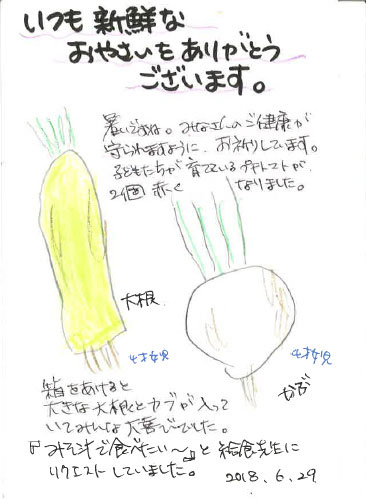 いつも新鮮な
おやさいをありがとう
ございます。
暑いですね。みなさんのご健康が
守られますように、お祈りしています。
子どもたちが育てているプチトマトが、
2個赤くなりました。
大根
4才女児
4才女児
かぶ
箱をあけると
大きな大根とカブが入って
いてみんな大喜びでした。
『みそ汁で食べたい〜』と給食先生に
リクエストしていました。
2018.6.29